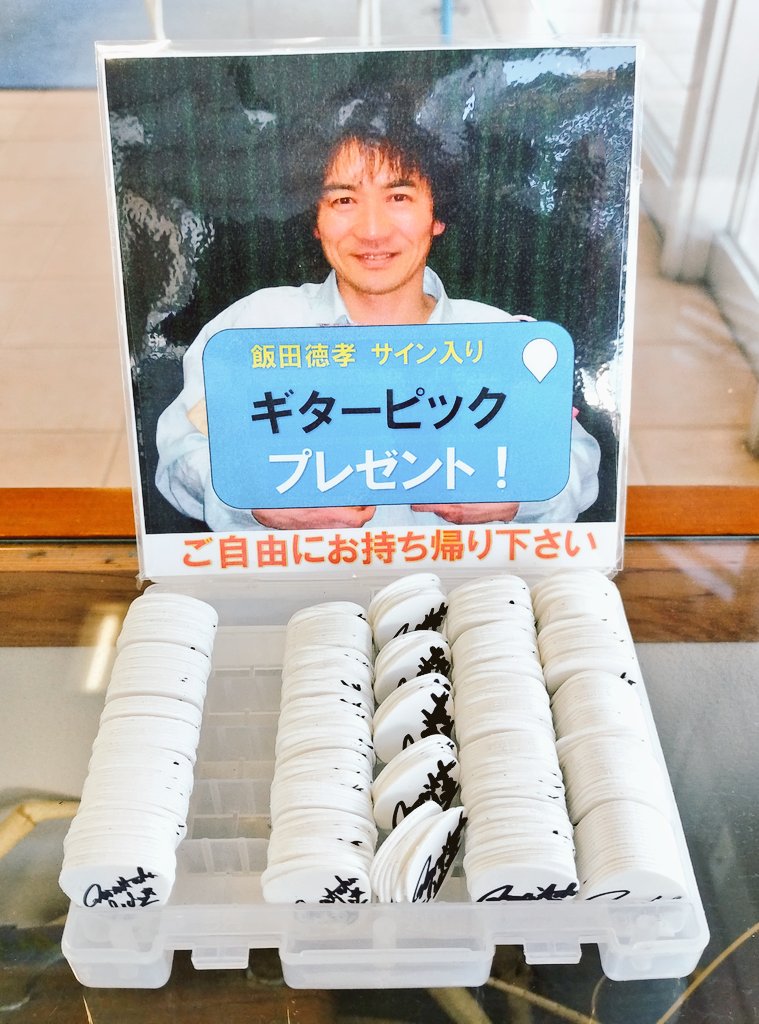 飯田徳孝 サイン入り
ギターピック
プレゼント！
ご自由にお持ち帰り下さい